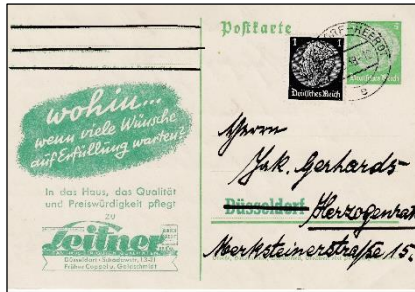 Postkarte
1
Deutsches Reich
Deutsches Reich
wohin...
wenn viele Wünsche
auf Erfüllung warten?
In das Haus, das Qualität
und Preiswürdigkeit pflegt
zu
Leitner
Düsseldorf · Schadowstr.
Früher Coppel u. Goldschmidt
Herrn
Jak. Gerhards
Düsseldorf Herzogenrat
Merksteinerstraße 15.